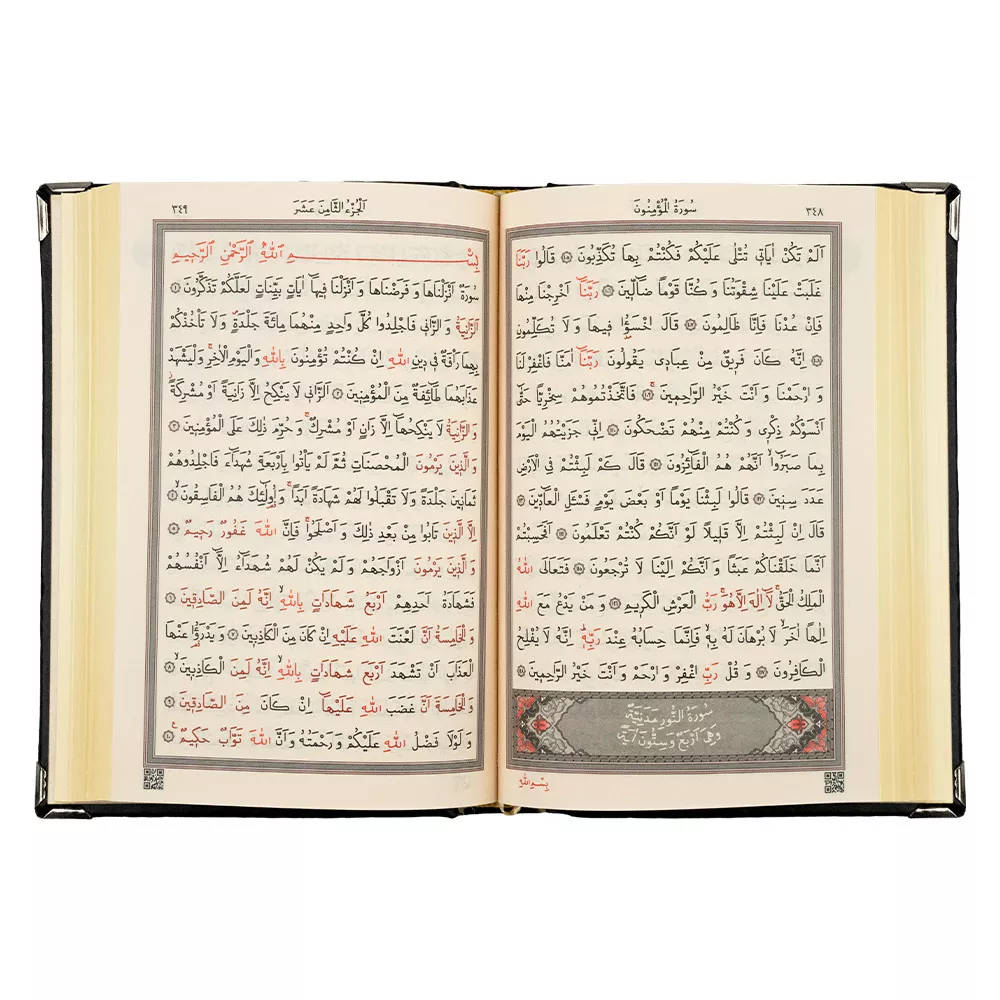 ٣٤٨
سُورَةُ الْمُؤْمِنُونَ
اَلَمْ تَكُنْ اٰيَاتٖى تُتْلٰى عَلَيْكُمْ فَكُنْتُمْ بِهَا تُكَذِّبُونَ ﴿١٠٥﴾ قَالُوا رَبَّنَا
غَلَبَتْ عَلَيْنَا شِقْوَتُنَا وَكُنَّا قَوْمًا ضَٓالّٖينَ ﴿١٠٦﴾ رَبَّنَٓا اَخْرِجْنَا مِنْهَا
فَاِنْ عُدْنَا فَاِنَّا ظَالِمُونَ ﴿١٠٧﴾ قَالَ اخْسَؤُ۫ا فٖيهَا وَ لَا تُكَلِّمُونِ
﴿١٠٨﴾ اِنَّهُ كَانَ فَرٖيقٌ مِنْ عِبَادٖى يَقُولُونَ رَبَّنَٓا اٰمَنَّا فَاغْفِرْ لَنَا
وَ ارْحَمْنَا وَ اَنْتَ خَيْرُ الرَّاحِمٖينَ ﴿١٠٩﴾ فَاتَّخَذْتُمُوهُمْ سِخْرِيًّا حَتّٰٓى
اَنْسَوْكُمْ ذِكْرٖى وَ كُنْتُمْ مِنْهُمْ تَضْحَكُونَ ﴿١١٠﴾ اِنّٖى جَزَيْتُهُمُ الْيَوْمَ
بِمَا صَبَرُٓوا اَنَّهُمْ هُمُ الْفَٓائِزُونَ ﴿١١١﴾ قَالَ كَمْ لَبِثْتُمْ فِى الْاَرْضِ
عَدَدَ سِنٖينَ ﴿١١٢﴾ قَالُوا لَبِثْنَا يَوْمًا اَوْ بَعْضَ يَوْمٍ فَسْـَٔلِ الْعَٓادّٖينَ ﴿١١٣﴾
قَالَ اِنْ لَبِثْتُمْ اِلَّا قَلٖيلًا لَوْ اَنَّكُمْ كُنْتُمْ تَعْلَمُونَ ﴿١١٤﴾ اَفَحَسِبْتُمْ
اَنَّمَا خَلَقْنَاكُمْ عَبَثًا وَ اَنَّكُمْ اِلَيْنَا لَا تُرْجَعُونَ ﴿١١٥﴾ فَتَعَالَى اللّٰهُ
الْمَلِكُ الْحَقُّۚ لَٓا اِلٰهَ اِلَّا هُوَۚ رَبُّ الْعَرْشِ الْكَرٖيمِ ﴿١١٦﴾ وَ مَنْ يَدْعُ مَعَ اللّٰهِ
اِلٰهًا اٰخَرَۙ لَا بُرْهَانَ لَهُ بِهٖۙ فَاِنَّمَا حِسَابُهُ عِنْدَ رَبِّهٖؕ اِنَّهُ لَا يُفْلِحُ
الْكَافِرُونَ ﴿١١٧﴾ وَ قُلْ رَبِّ اغْفِرْ وَ ارْحَمْ وَ اَنْتَ خَيْرُ الرَّاحِمٖينَ ﴿١١٨﴾
سُورَةُ النُّورِ مَدَنِيَّةٌ
وَهِىَ اَرْبَعٌ وَ سِتُّونَ اٰيَةً
بِسْمِ اللّٰهِ
اَلْجُزْءُ الثَّامِنَ عَشَرَ
٣٤٩
بِسْمِ اللّٰهِ الرَّحْمٰنِ الرَّحٖيمِ
سُورَةٌ اَنْزَلْنَاهَا وَ فَرَضْنَاهَا وَ اَنْزَلْنَا فٖيهَٓا اٰيَاتٍ بَيِّنَاتٍ لَعَلَّكُمْ تَذَكَّرُونَ ﴿١﴾
اَلزَّانِيَةُ وَ الزَّانٖى فَاجْلِدُوا كُلَّ وَاحِدٍ مِنْهُمَا مِائَةَ جَلْدَةٍۖ وَ لَا تَأْخُذْكُمْ
بِهِمَا رَأْفَةٌ فٖى دٖينِ اللّٰهِ اِنْ كُنْتُمْ تُؤْمِنُونَ بِاللّٰهِ وَالْيَوْمِ الْاٰخِرِۚ وَلْيَشْهَدْ
عَذَابَهُمَا طَٓائِفَةٌ مِنَ الْمُؤْمِنٖينَ ﴿٢﴾ اَلزَّانٖى لَا يَنْكِحُ اِلَّا زَانِيَةً اَوْ مُشْرِكَةًؗ
وَ الزَّانِيَةُ لَا يَنْكِحُهَٓا اِلَّا زَانٍ اَوْ مُشْرِكٌۚ وَ حُرِّمَ ذٰلِكَ عَلَى الْمُؤْمِنٖينَ ﴿٣﴾
وَ الَّذٖينَ يَرْمُونَ الْمُحْصَنَاتِ ثُمَّ لَمْ يَأْتُوا بِاَرْبَعَةِ شُهَدَٓاءَ فَاجْلِدُوهُمْ
ثَمَانٖينَ جَلْدَةً وَلَا تَقْبَلُوا لَهُمْ شَهَادَةً اَبَدًاۚ وَ اُو۬لٰٓئِكَ هُمُ الْفَاسِقُونَ ﴿٤﴾
اِلَّا الَّذٖينَ تَابُوا مِنْ بَعْدِ ذٰلِكَ وَ اَصْلَحُواۚ فَاِنَّ اللّٰهَ غَفُورٌ رَحٖيمٌ ﴿٥﴾
وَ الَّذٖينَ يَرْمُونَ اَزْوَاجَهُمْ وَلَمْ يَكُنْ لَهُمْ شُهَدَٓاءُ اِلَّٓا اَنْفُسُهُمْ
فَشَهَادَةُ اَحَدِهِمْ اَرْبَعُ شَهَادَاتٍ بِاللّٰهِۙ اِنَّهُ لَمِنَ الصَّادِقٖينَ ﴿٦﴾
وَ الْخَامِسَةُ اَنَّ لَعْنَتَ اللّٰهِ عَلَيْهِ اِنْ كَانَ مِنَ الْكَاذِبٖينَ ﴿٧﴾ وَ يَدْرَؤُ۬ا عَنْهَا
الْعَذَابَ اَنْ تَشْهَدَ اَرْبَعَ شَهَادَاتٍ بِاللّٰهِۙ اِنَّهُ لَمِنَ الْكَاذِبٖينَۙ ﴿٨﴾
وَ الْخَامِسَةَ اَنَّ غَضَبَ اللّٰهِ عَلَيْهَٓا اِنْ كَانَ مِنَ الصَّادِقٖينَ ﴿٩﴾
وَ لَوْلَا فَضْلُ اللّٰهِ عَلَيْكُمْ وَ رَحْمَتُهُ وَ اَنَّ اللّٰهَ تَوَّابٌ حَكٖيمٌ۟ ﴿١٠﴾